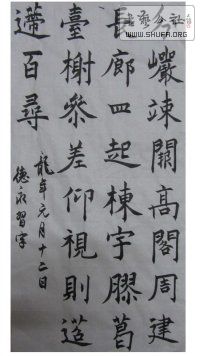 巖竦闕高閣周建
長廊四起棟宇膠葛
臺榭參差仰視則迢
遰百尋
龍年元月十二日
德永習字
書法公社
WWW.SHUFA.ORG